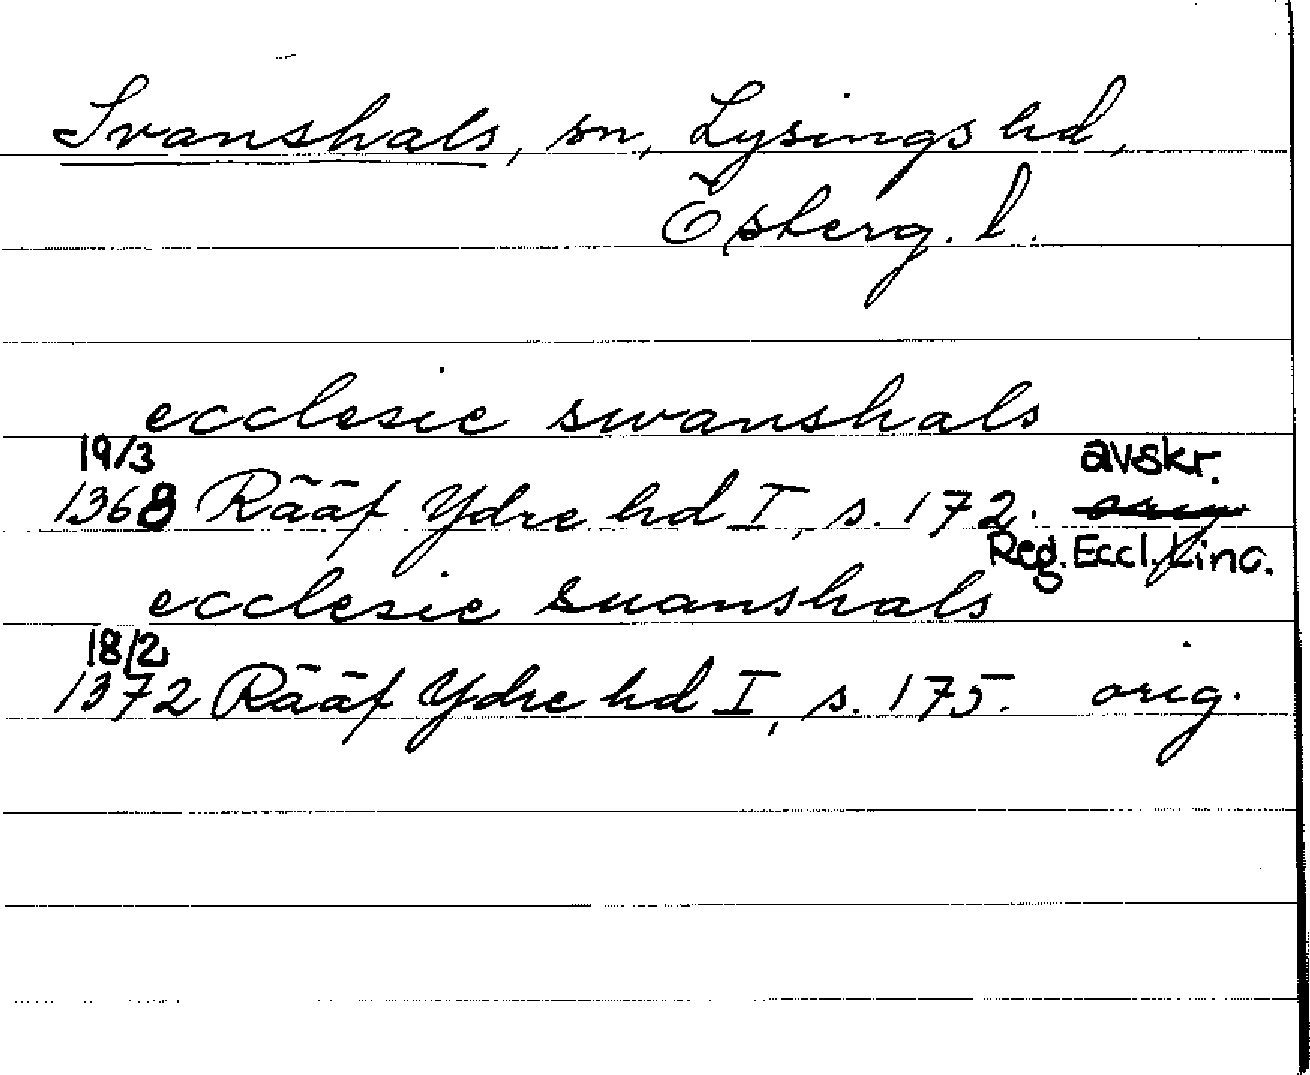 Svanshals, sn, Lysings hd,
Österg. l.
ecclesie swanshals
19/3
avskr.
1368 Rääf Ydre hd I, s. 172. orig
Reg. Eccl. Linc.
ecclesie suanshals
18/2
1372 Rääf Ydre hd I, s. 175. orig.